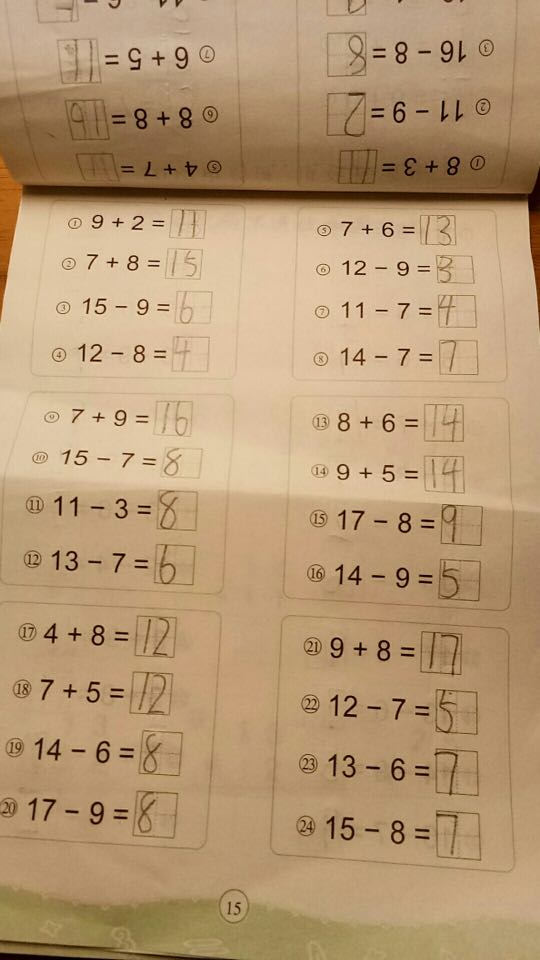 ⑦ 6 + 5 = 11
③ 16 − 8 = 8
⑥ 8 + 8 = 16
② 11 − 9 = 2
⑤ 4 + 7 = 11
① 8 + 3 = 11
① 9 + 2 = 11
② 7 + 8 = 15
③ 15 − 9 = 6
④ 12 − 8 = 4
⑤ 7 + 6 = 13
⑥ 12 − 9 = 3
⑦ 11 − 7 = 4
⑧ 14 − 7 = 7
⑨ 7 + 9 = 16
⑩ 15 − 7 = 8
⑪ 11 − 3 = 8
⑫ 13 − 7 = 6
⑬ 8 + 6 = 14
⑭ 9 + 5 = 14
⑮ 17 − 8 = 9
⑯ 14 − 9 = 5
⑰ 4 + 8 = 12
⑱ 7 + 5 = 12
⑲ 14 − 6 = 8
⑳ 17 − 9 = 8
㉑ 9 + 8 = 17
㉒ 12 − 7 = 5
㉓ 13 − 6 = 7
㉔ 15 − 8 = 7
15